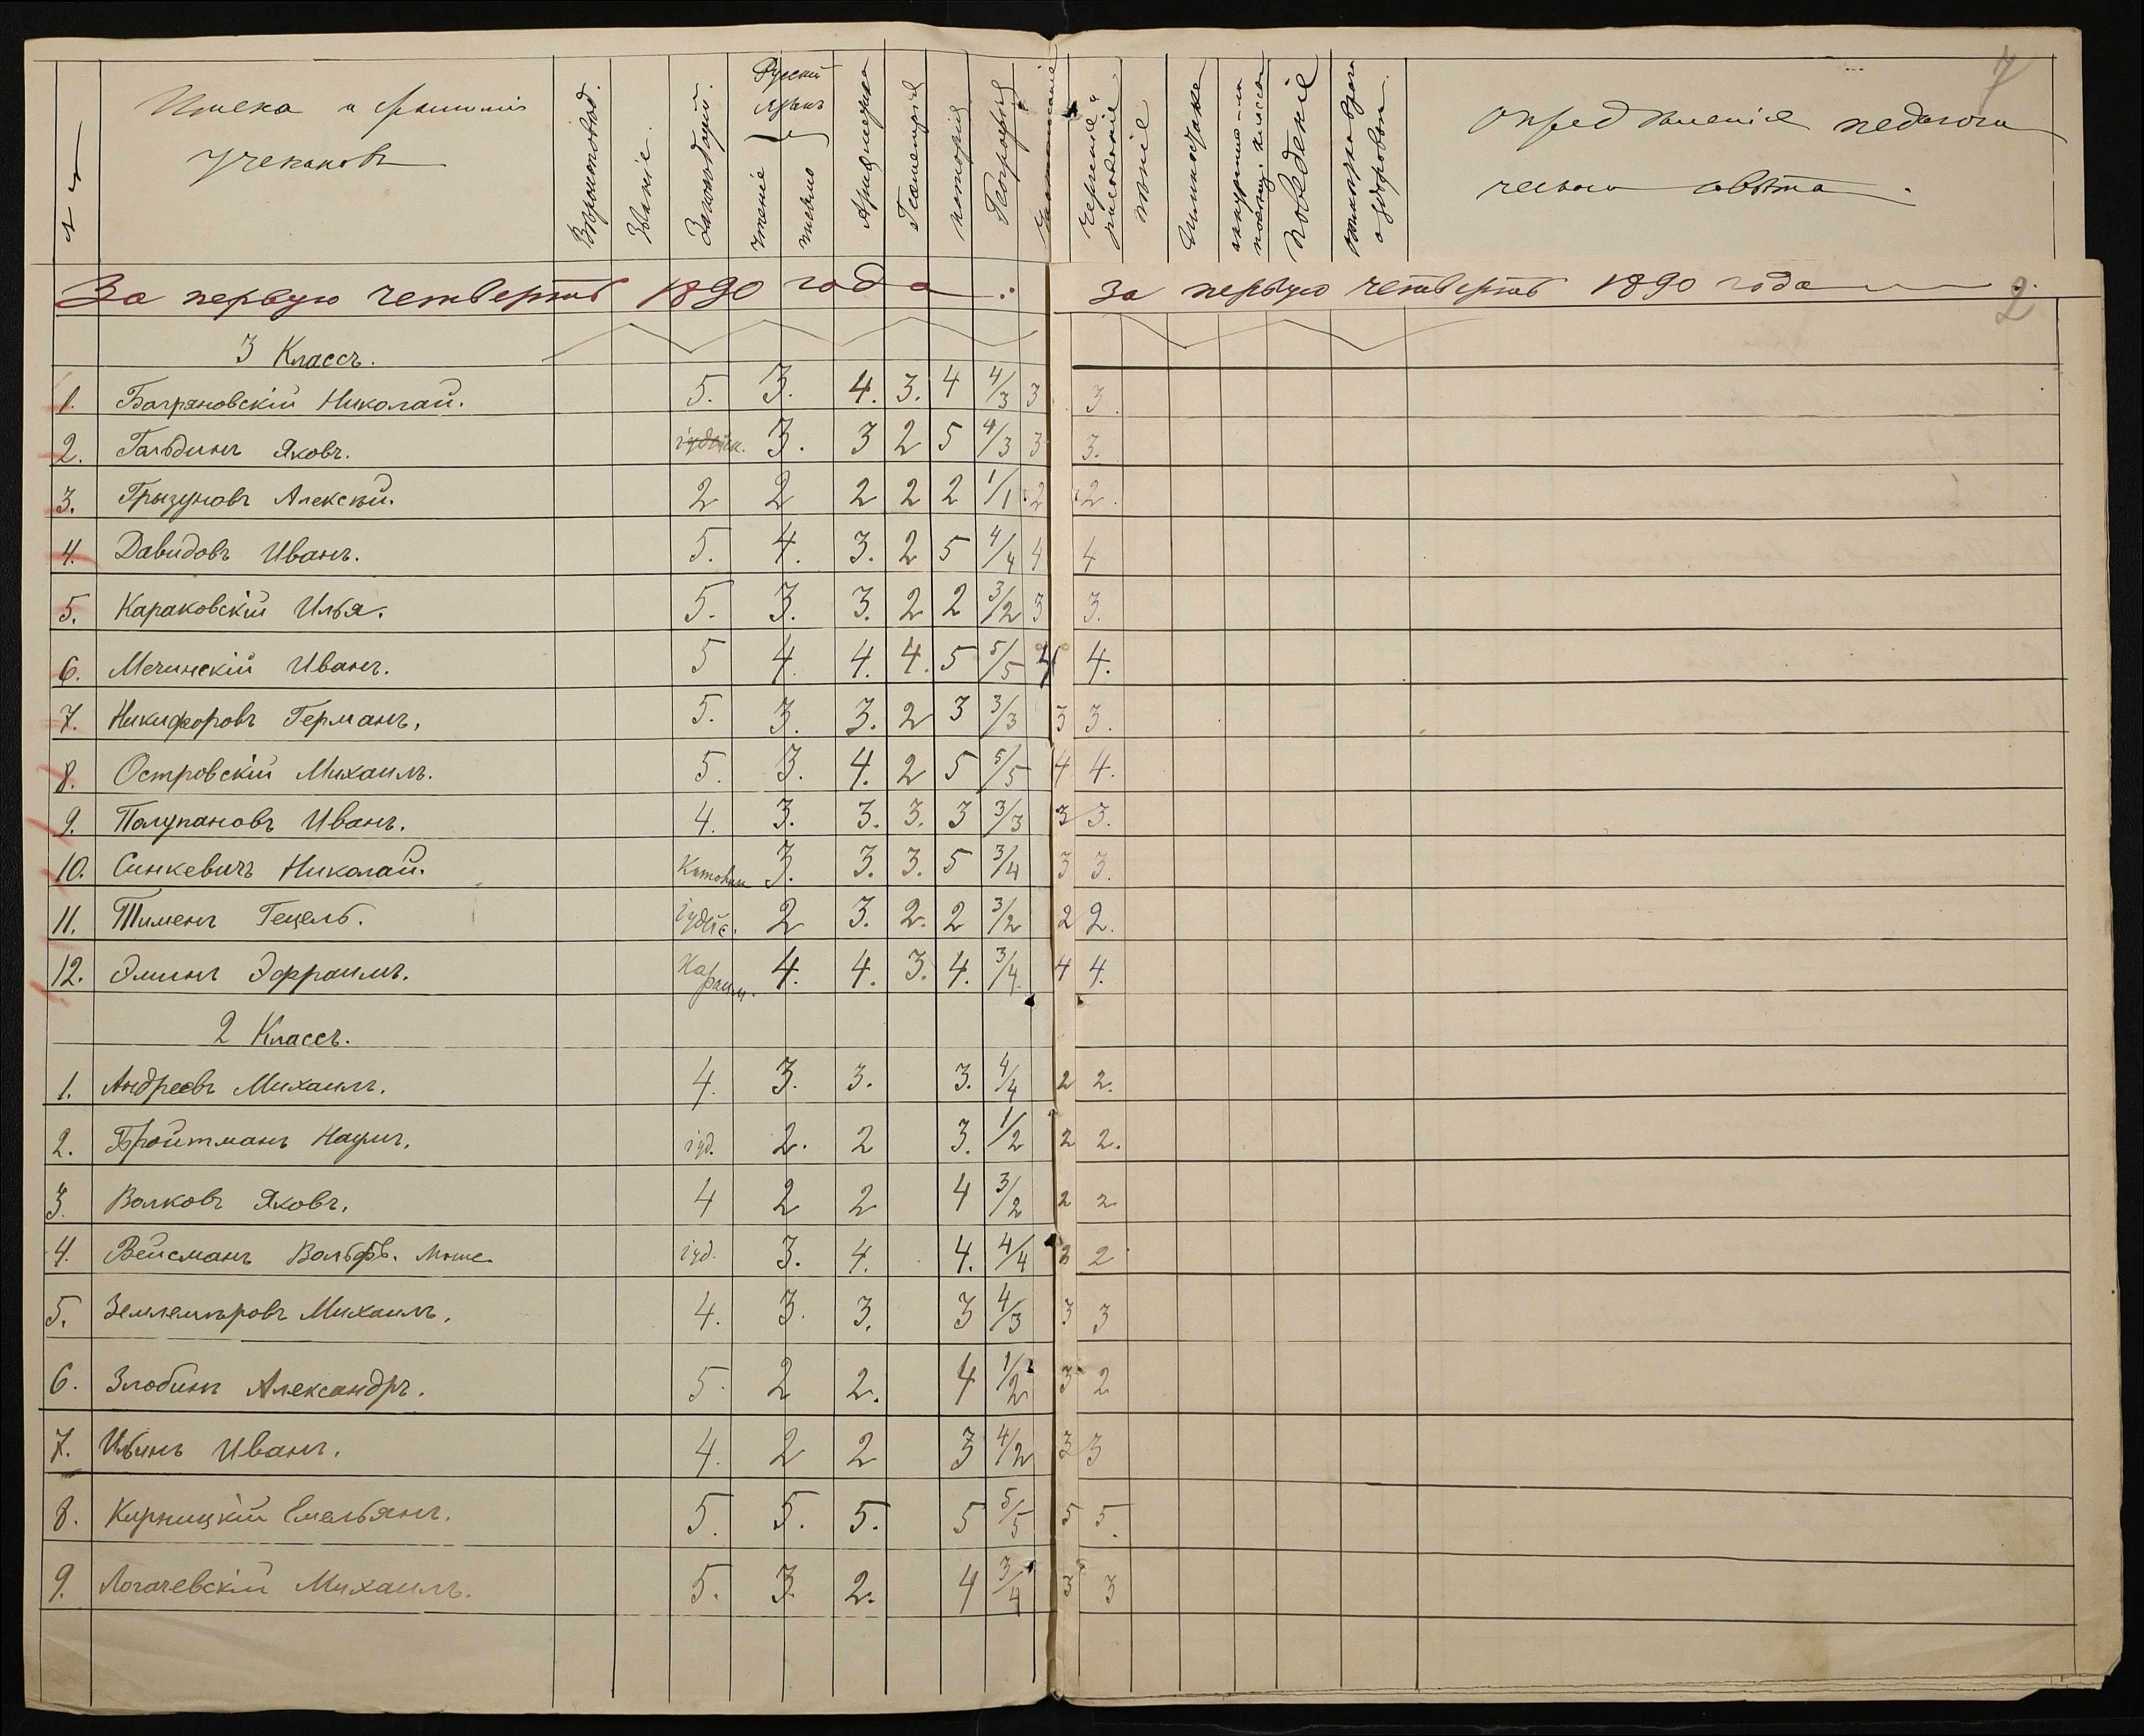 Имена и фамилии
учениковъ
Вѣроисповѣд.
Званіе.
Законъ Божій.
Русскій
Языкъ
чтеніе
письмо
Ариѳметика
Геометрія
исторія
Географія
Чистописаніе
черченіе и
рисованіе
пѣніе
Гимнастика
поведеніе
Опредѣленіе педагоги
ческаго совѣта.
7
За первую четверть 1890 года. За первую четверть 1890 года
2
3 Классъ.
1. Багряновскій Николай. 5. 3. 4. 3. 4 4/3 3 3.
2. Гальдинъ Яковъ. іудейск. 3. 3 2 5 4/3 3 3.
3. Грызуновъ Алексѣй. 2 2 2 2 2 1/1 2 2.
4. Давидовъ Иванъ. 5. 4. 3. 2 5 4/4 4 4
5. Караковскій Илья. 5. 3. 3. 2 2 3/2 3 3.
6. Мечинскій Иванъ. 5 4. 4. 4. 5 5/5 4 4.
7. Никифоровъ Германъ. 5. 3. 3. 2 3 3/3 3 3.
8. Островскій Михаилъ. 5. 3. 4. 2 5 5/5 4 4.
9. Полупановъ Иванъ. 4. 3. 3. 3. 3 3/3 3 3.
10. Синкевичъ Николай. 3. 3. 3. 5 3/4 3 3.
11. Тименъ Гецель. іудейс. 2 3. 2. 2 3/2 2 2.
12. Эминъ Эфраимъ. Караим. 4. 4. 3. 4. 3/4 4 4.
2 Классъ.
1. Андреевъ Михаилъ. 4. 3. 3. 3. 4/4 2 2.
2. Бройтманъ Наумъ. іуд. 2. 2 3. 1/2 2 2.
3. Волковъ Яковъ. 4 2 2 4 3/2 2 2
4. Вейсманъ Вольфъ. Моше. іуд. 3. 4. 4. 4/4 2
5. Землемѣровъ Михаилъ. 4. 3. 3. 3 4/3 3 3
6. Злобинъ Александръ. 5. 2 2. 4 1/2 3 2
7. Ильинъ Иванъ. 4. 2 2 3 4/2 3 3
8. Кирницкій Емельянъ. 5. 5. 5. 5 5/5 5 5.
9. Логачевскій Михаилъ. 5. 3. 2. 4 3/4 3 3